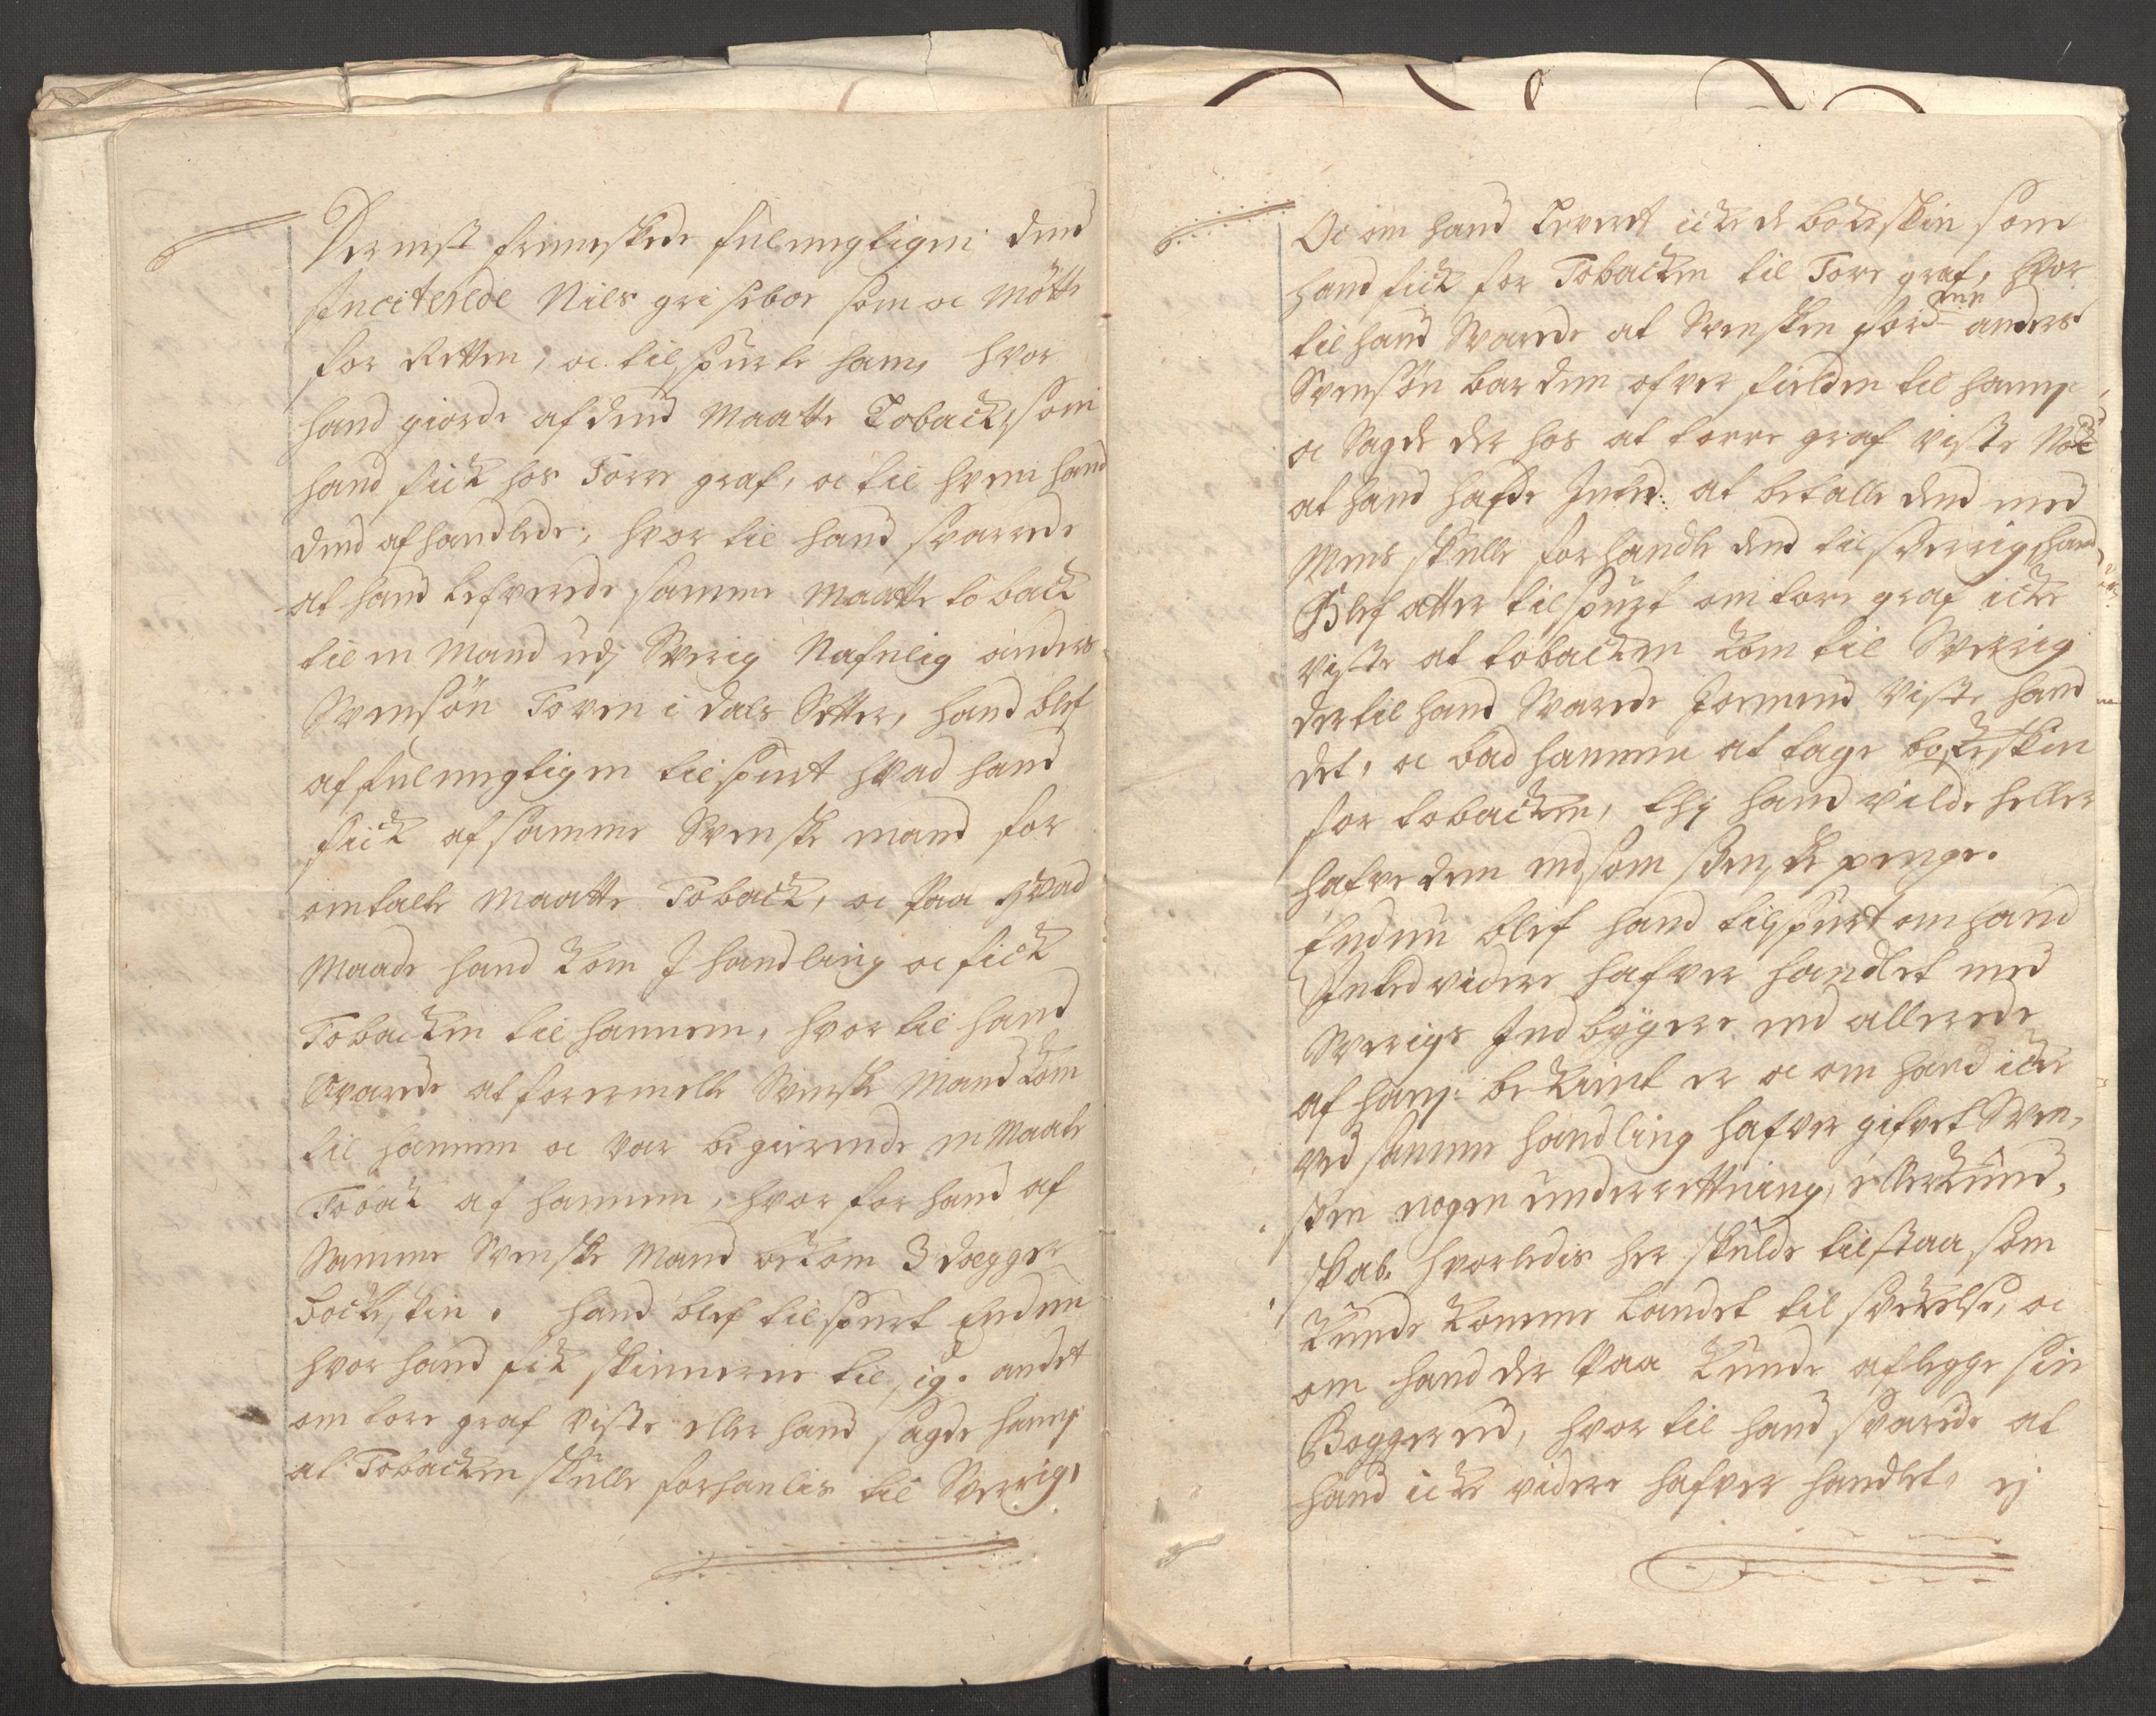 Dernest fremeskede fulmegtigen dend
Inciterede Niels grisebor som oc Mötte
for Retten, oc tilspurte ham, hvor
hand giorde af dend Maatte Toback, som
hand fick hos Torre graf, oc til hvem hand
dend afhandlede; hvor til hand svarrede
at hand lefverede samme Maatte toback
til en Mand udj Sverig Nafnlig anders
Svensön Toven i dals Setter, hand blef
af fulmegtigen tilspurt hvad hand
fick af samme Svenske mand for
omtalte Maatte Toback, oc Paa hvad
Maade hand kom J handling oc fick
Tobacken til hannem, hvor til hand
Svarede at forermelte Svenske Mand kom
til hannem oc var begierende en Maate
Toback af hannem, hvor for hand af
Samme Svenske Mand bekom 3 dogger
bockeskin. hand blef tilspurt Endnu
hvor hand fik skinnerne til sig. andet
om tore graf viste eller hand sagde hanem
at Tobacken skulle forhanlis til Sverrig,
Oc om hand Leveret icke de bockeskin som
hand fick for Tobacken til Tore graf, hvor
til hand Svarede at Svensken ford anders
Svensön bar dem ofver fielden til hannem
oc Sagde der hos at torre graf viste Nock
at hand hafde Inted at betalle dend med
Mens skulle forhandle dend til Sverrig, hand
Blef atter tilspurt om tore graf icke
viste at tobacken kom til Sverrig
der til hand Svarede Jormend Viste hand
det, oc bad hannem at tage bockeskin
for tobacken, thj hand vilde heller
hafve dem end som svenske penge.
Endnu blef hand tilspurt om hand
Inted videre hafver handlet med
Sverigs Indbygere end allerede
af hanem bekiendt er oc om hand icke
ved samme handling hafver gifvet Sven,
sken nogen underrettning, eller kund,
skab. hvorledis her skulde tilstaa som
kunde komme Landet til svekelse, oc
om hand der Paa kunde aflegge sin
Boggereed, hvor til hand svarede at
hand icke videre hafver handlet, ej